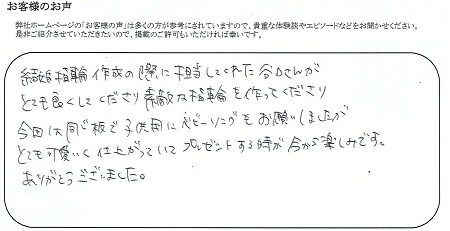 お客様のお声
弊社ホームページの「お客様の声」は多くの方が参考にされていますので、貴重な体験談やエピソードなどをお聞かせください。
是非ご紹介させていただきたいので、掲載のご許可もいただければ幸いです。
結婚指輪作成の際に担当してくれた谷口さんが
とても良くしてくださり素敵な指輪を作ってくださり
今回は同じ板で子供用にベビーリングをお願いしましたが
とても可愛いく仕上がっていてプレゼントする時が今から楽しみです。
ありがとうございました。